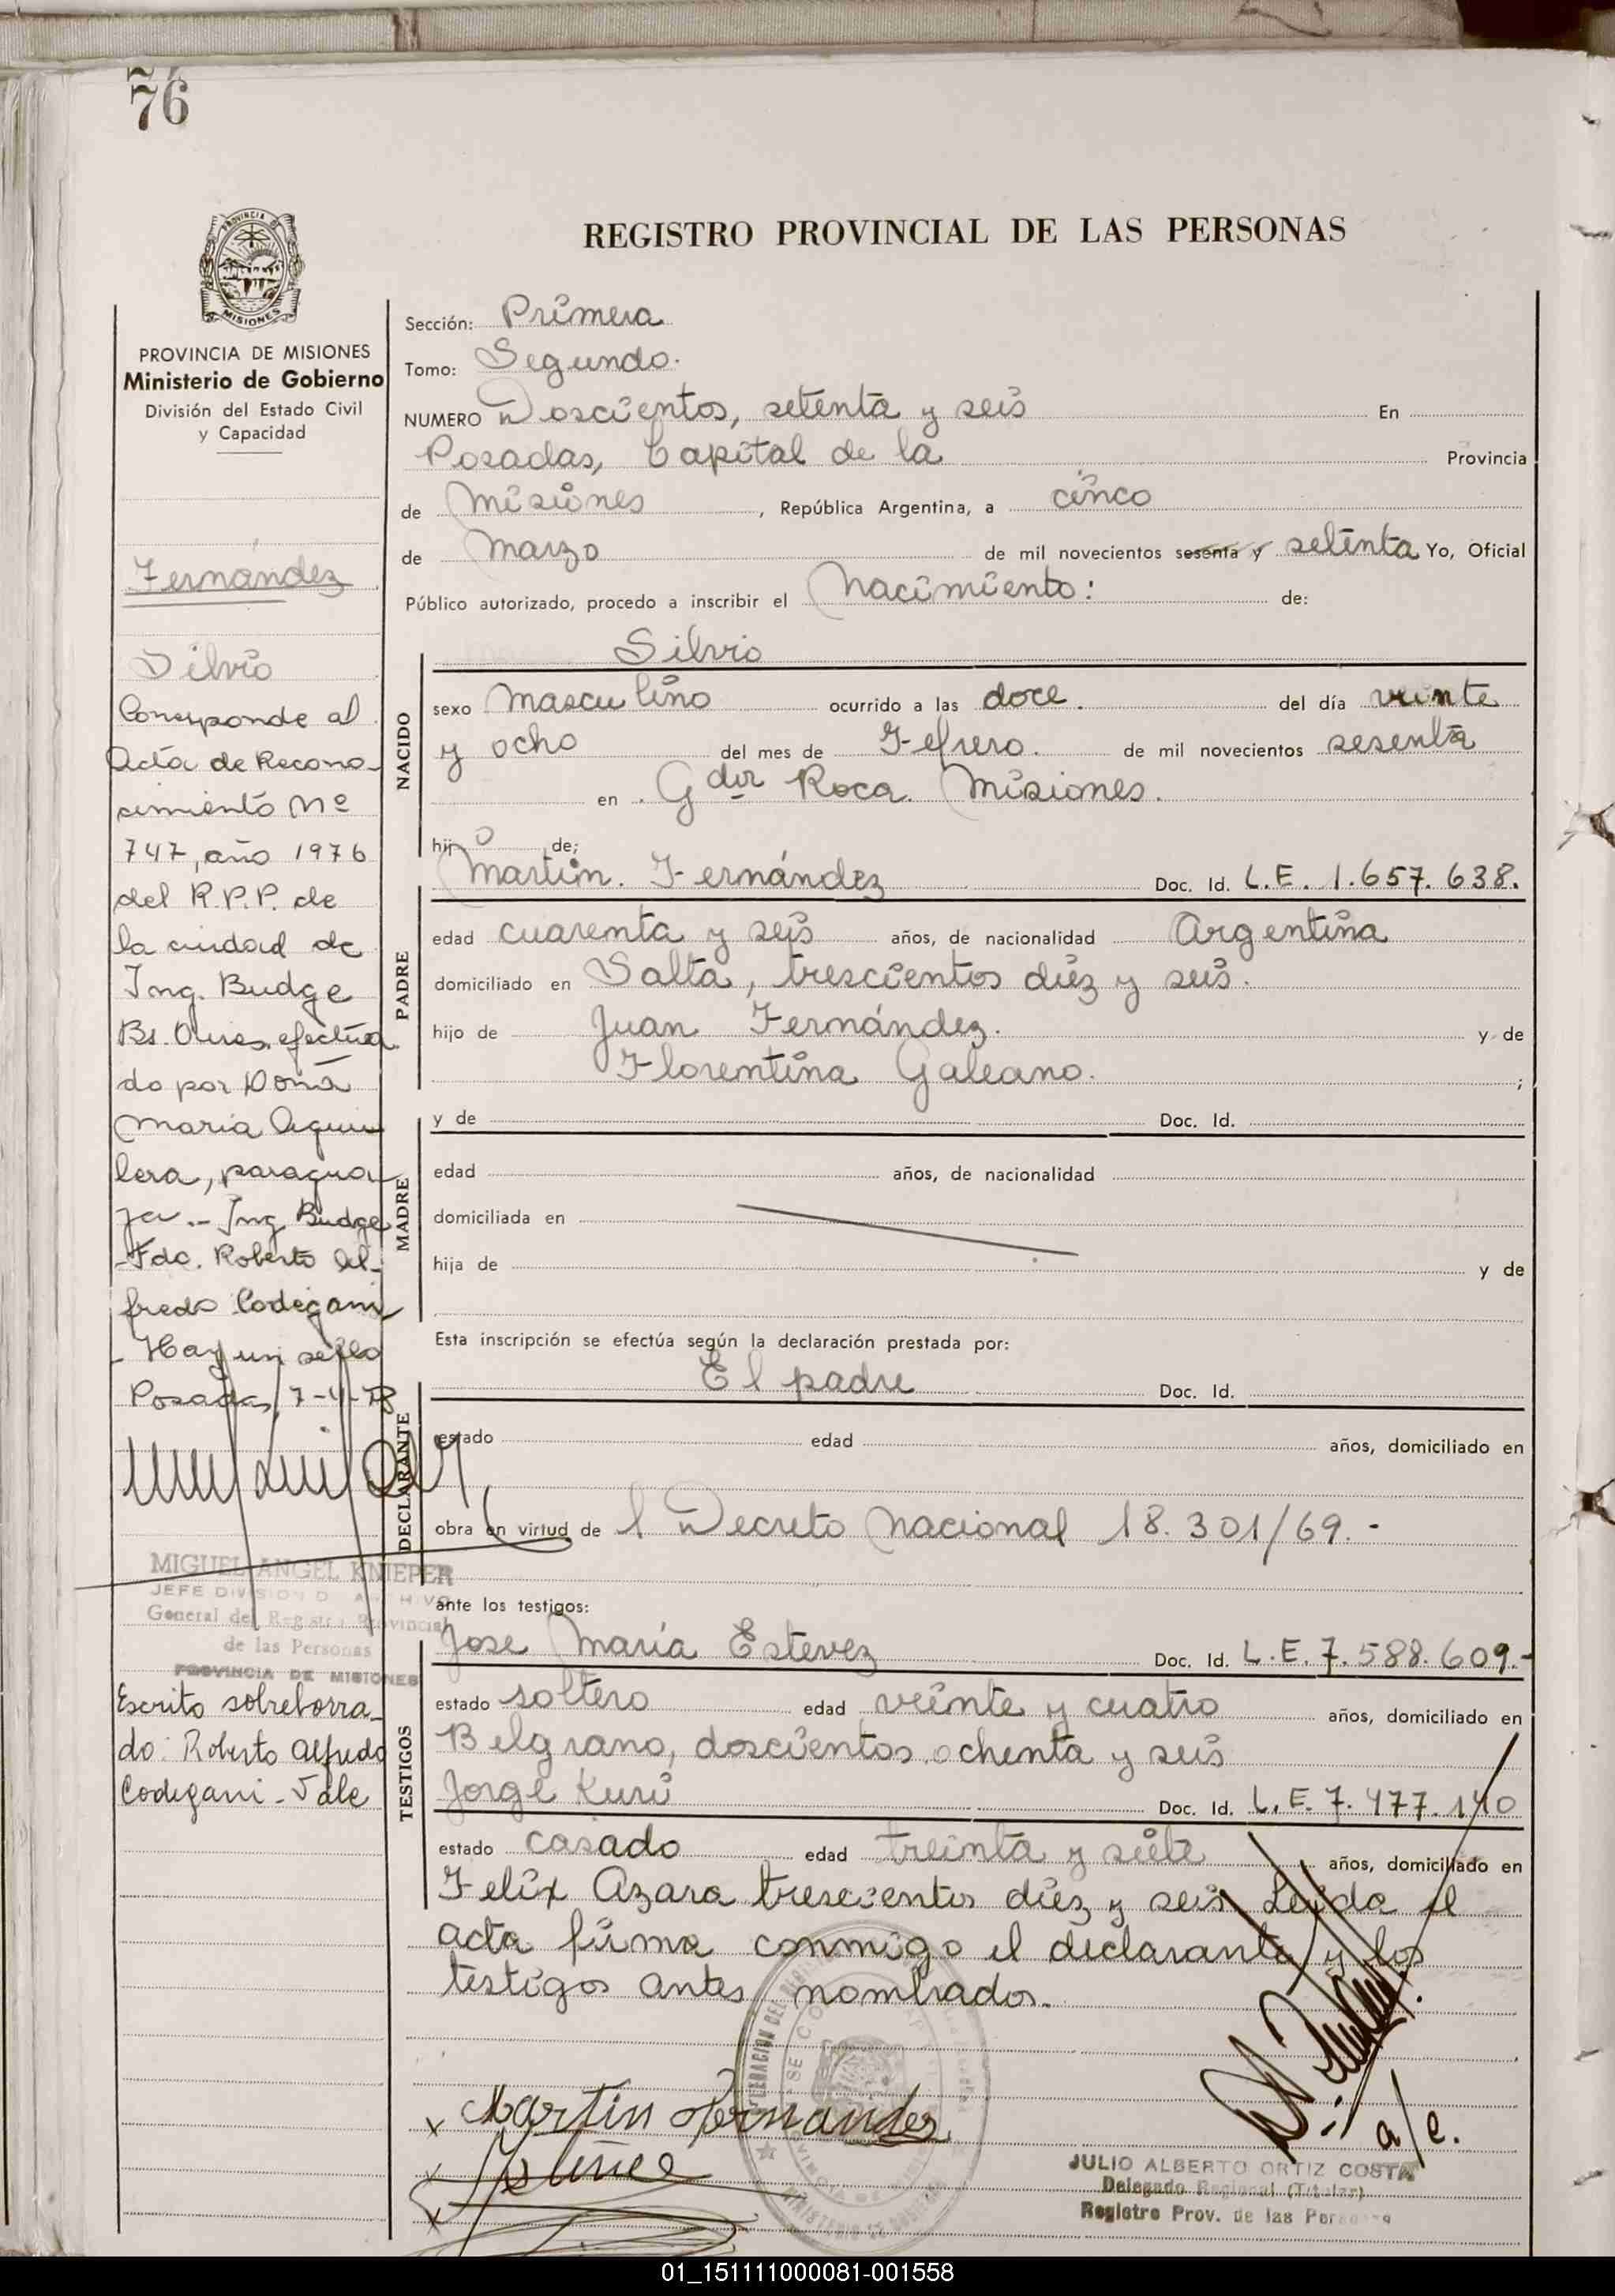 76
REGISTRO PROVINCIAL DE LAS PERSONAS
PROVINCIA
MISIONES
PROVINCIA DE MISIONES
Ministerio de Gobierno
División del Estado Civil
y Capacidad
Fernández
Silvio
Corresponde al
Acta de Recono-
cimiento Nº
747, año 1976
del R.P.P. de
la ciudad de
Ing. Budge
Bs. Aires, efectua
do por Doña
Maria Agui
lera, paragua
ya.- Ing. Budge
Fdo. Roberto Al-
fredo Codegani
Hay un sello
Posadas, 7-4-78
MIGUEL ANGEL KNIEPER
JEFE DIVISION D ARCHIVO
General del Registro Provincial
de las Personas
PROVINCIA DE MISIONES
Escrito sobreborra-
do: Roberto Alfredo
Codegani - Vale
Sección: Primera
Tomo: Segundo.
NUMERO Doscientos, setenta y seis En
Posadas, Capital de la Provincia
de Misiones, República Argentina, a cinco
de Marzo de mil novecientos sesenta y setenta Yo, Oficial
Público autorizado, procedo a inscribir el Nacimiento: de:
Silvio
NACIDO
sexo Masculino ocurrido a las doce. del día veinte
y ocho del mes de Febrero. de mil novecientos sesenta
en Gdor Roca. Misiones.
hijo de;
PADRE
Martin. Fernández Doc. Id. L.E. 1.657.638.
edad cuarenta y seis años, de nacionalidad Argentina
domiciliado en Salta, trescientos diez y seis.
hijo de Juan Fernández. y de
Florentina Galeano. ;
MADRE
y de Doc. Id.
edad años, de nacionalidad
domiciliada en
hija de y de
Esta inscripción se efectúa según la declaración prestada por:
DECLARANTE
El padre Doc. Id.
estado edad años, domiciliado en
obra en virtud de l Decreto Nacional 18.301/69.-
ante los testigos:
TESTIGOS
Jose Maria Estevez Doc. Id. L.E. 7.588.609.-
estado soltero edad veinte y cuatro años, domiciliado en
Belgrano, doscientos ochenta y seis
Jorge Kuru Doc. Id. L.E. 7.477.140
estado casado edad treinta y siete años, domiciliado en
Felix Azara trescientos diez y seis Leida el
acta firma conmigo el declarante y los
testigos antes nombrados.
x Martin Fernandez
a/c.
JULIO ALBERTO ORTIZ COSTA
Delegado Regional (Titular)
Registro Prov. de las Personas
01_151111000081-001558